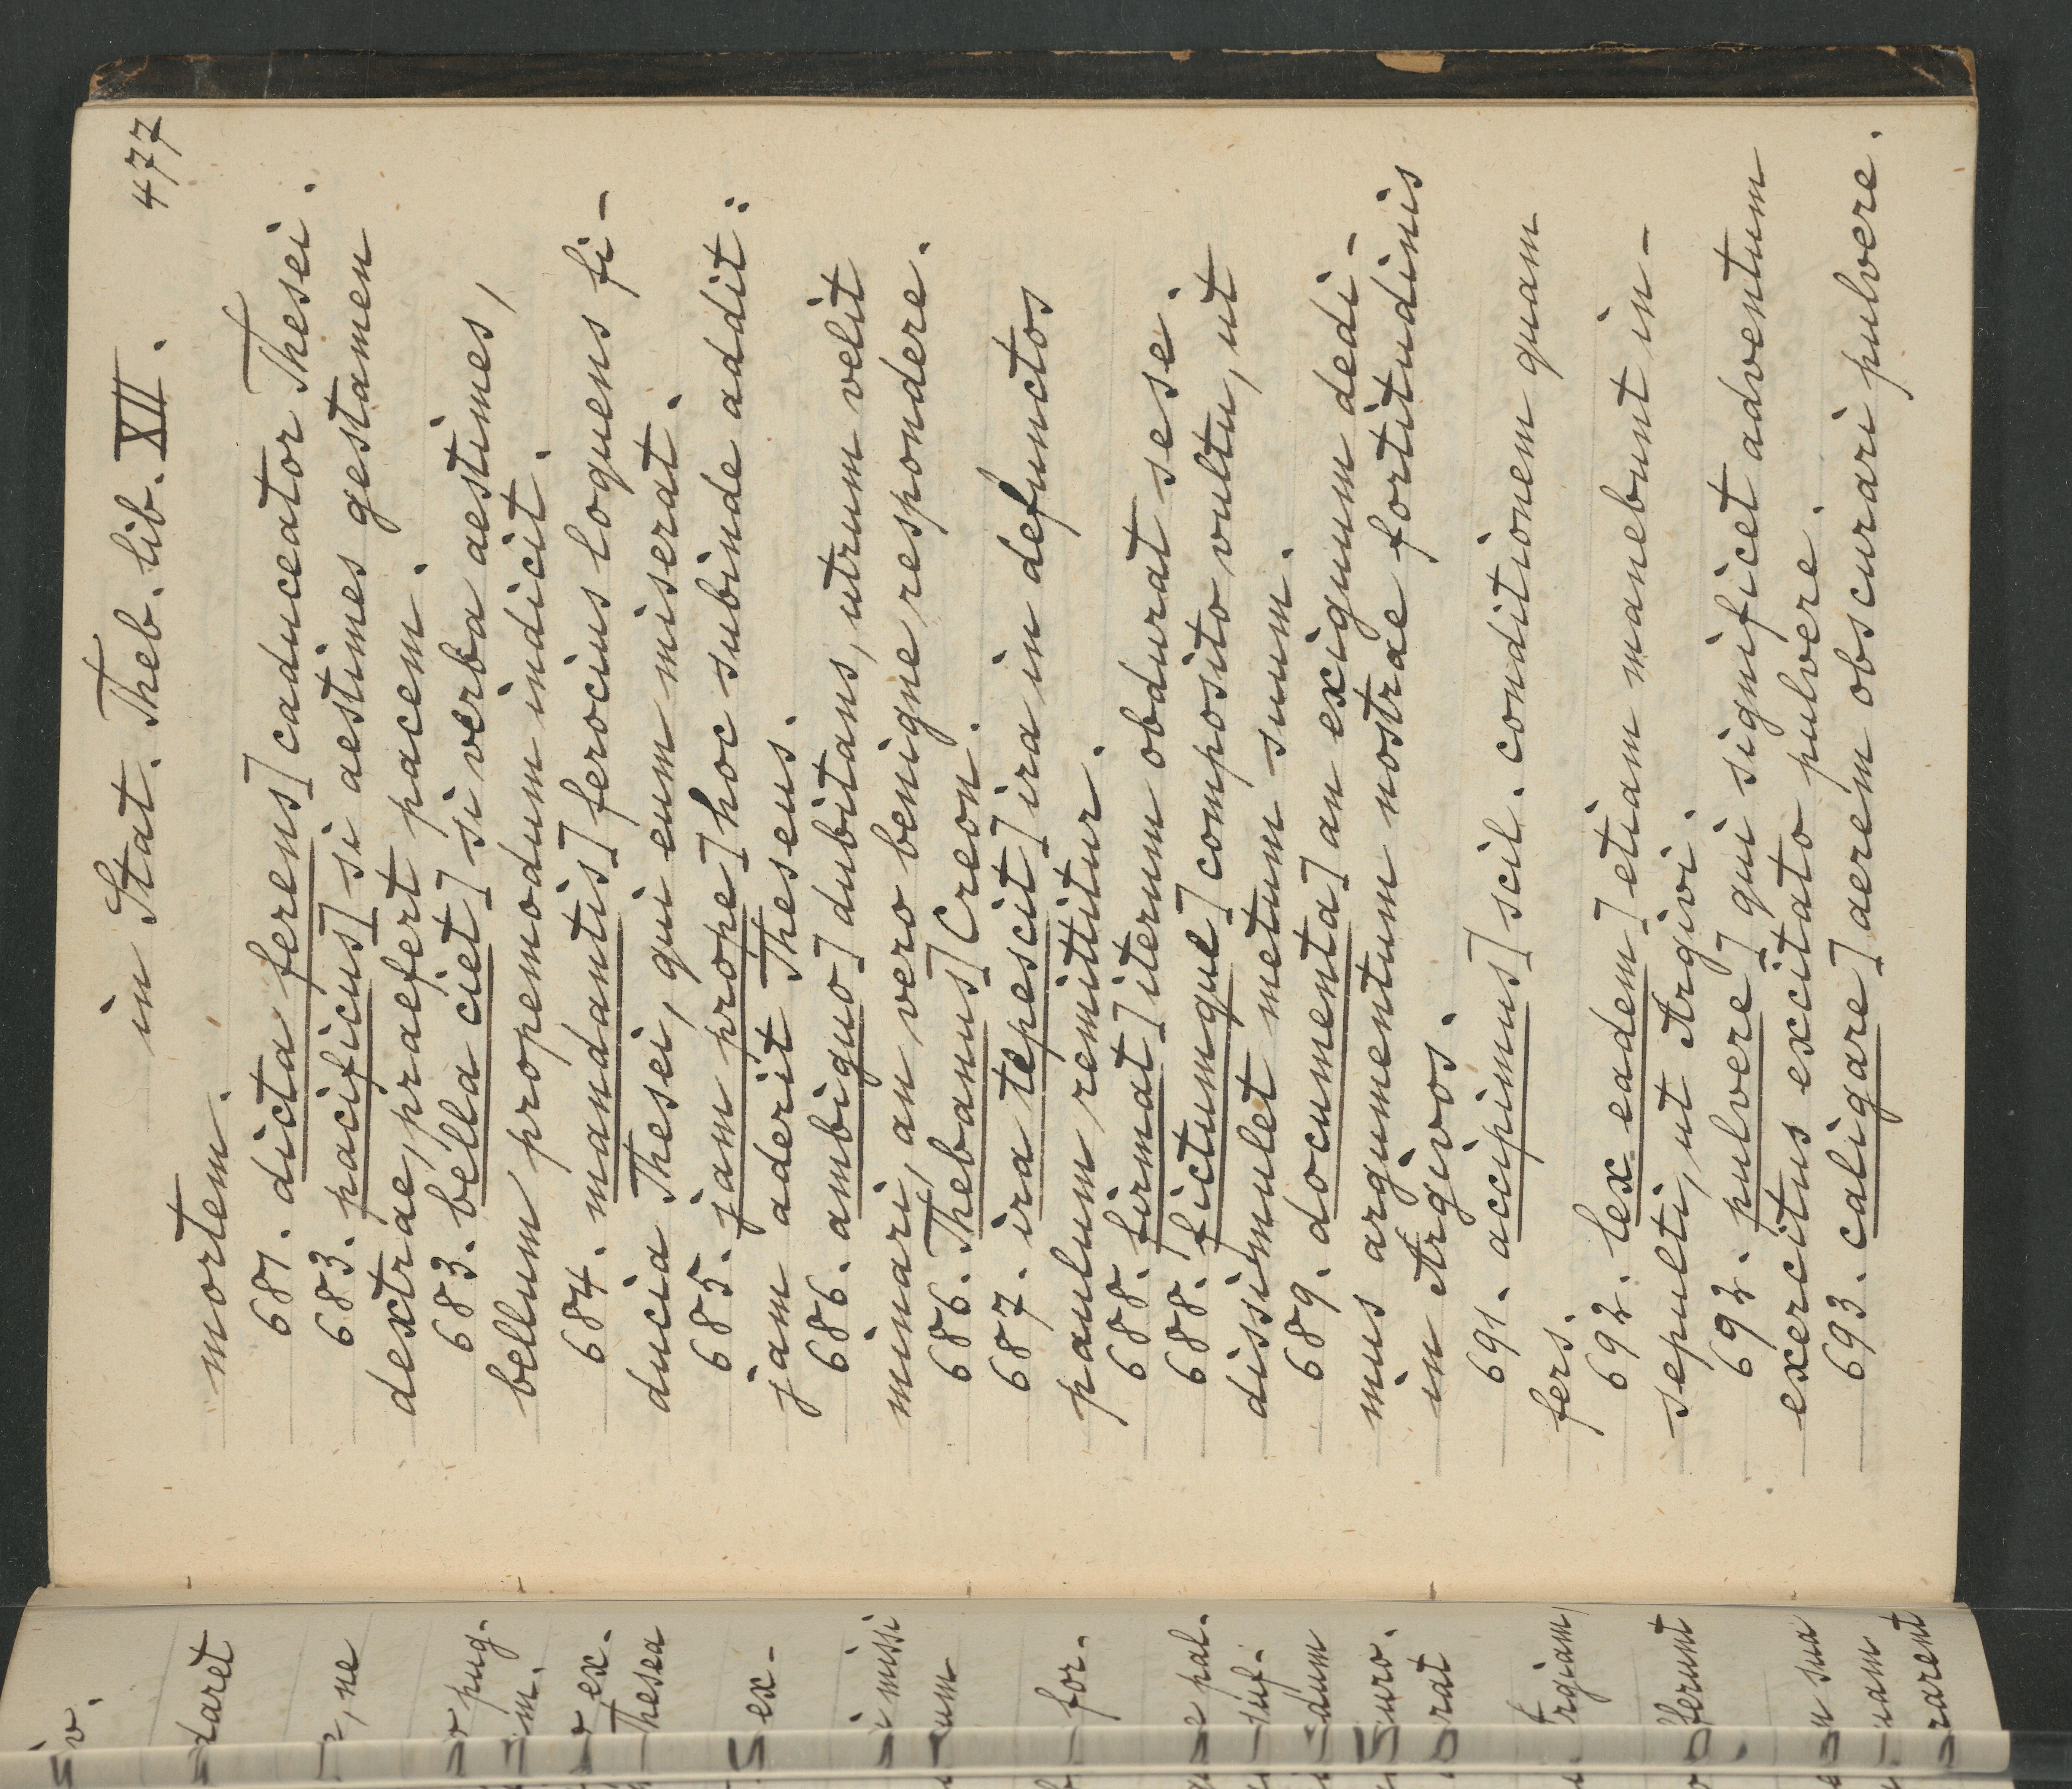 in Stat. Theb. lib. XII. 477
mortem.
681. dicta ferens] caduceator Thesei.
683. pacificus] si aestimes gestamen
dextrae, praefert pacem.
683. bella ciet] si verba aestimes,
bellum propemodum indicit.
684. mandantis] ferocius loquens fi-
ducia Thesei, qui eum miserat.
685. jam prope] hoc subinde addit:
jam aderit Theseus.
686. ambiguo] dubitans, utrum velit
minari, an vero benigne respondere.
686. Thebanus] Creon.
687. ira tepescit] ira in defunctos
paulum remittitur.
688. firmat] iterum obdurat sese.
688. fictumque] composito vultu, ut
dissimulet metum suum.
689. documenta] an exiguum dedi-
mus argumentum nostrae fortitudinis
in Argivos.
691. accipimus] scil. conditionem quam
fers.
692. lex eadem] etiam manebunt in-
sepulti, ut Argivi.
692. pulvere] qui significet adventum
exercitus excitato pulvere.
693. caligare] aerem obscurari pulvere.
iv.
daret
, ne
pug.
m.
ex.
Thesea
ex-
missi
um
for.
pal.
suf.
dum
uro.
rat
rgiam,
ferunt
sua
uam
rarent